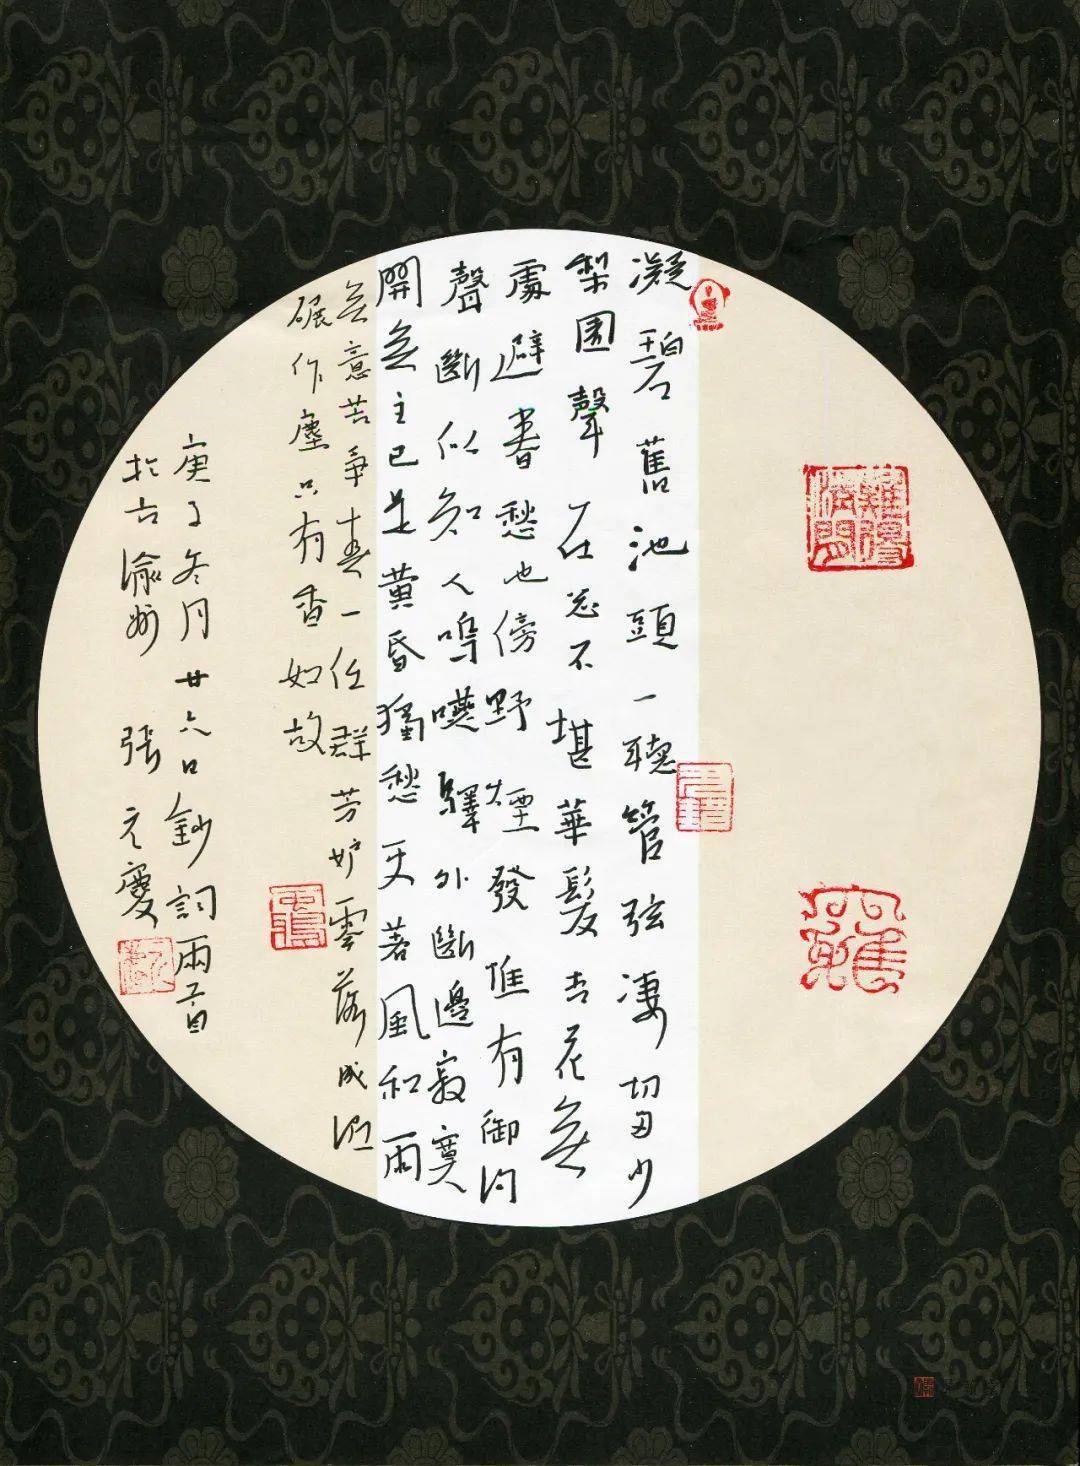 凝碧舊池頭一聽管弦凄切多少
梨園聲在总不堪華髮杏花無
處避春愁也傍野煙發惟有御沟
聲斷似知人嗚嚥驛外斷邊寂寞
開無主已是黄昏獨愁更著風和雨
無意苦争春一任群芳妒零落成泥
碾作塵只有香如故
庚子冬月廿六日鈔詞兩首
於古渝州張元慶